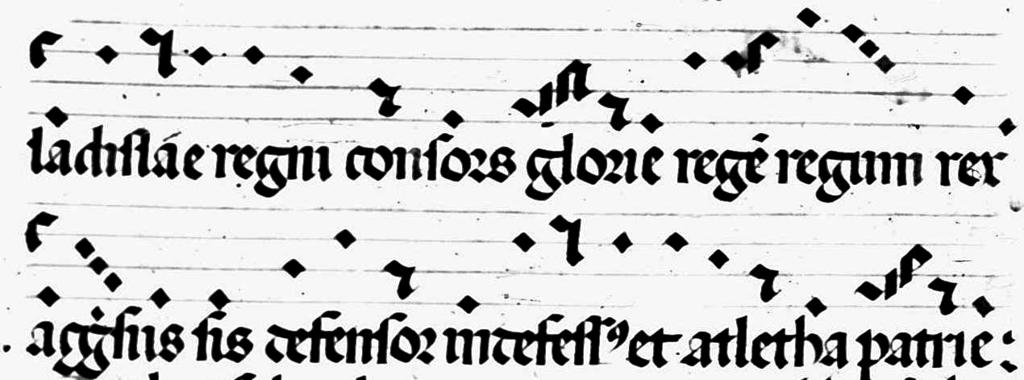 ladislae regni consors glorie regē regum rex
aggressus sis defensor indefessꝰ et atletha patrie: